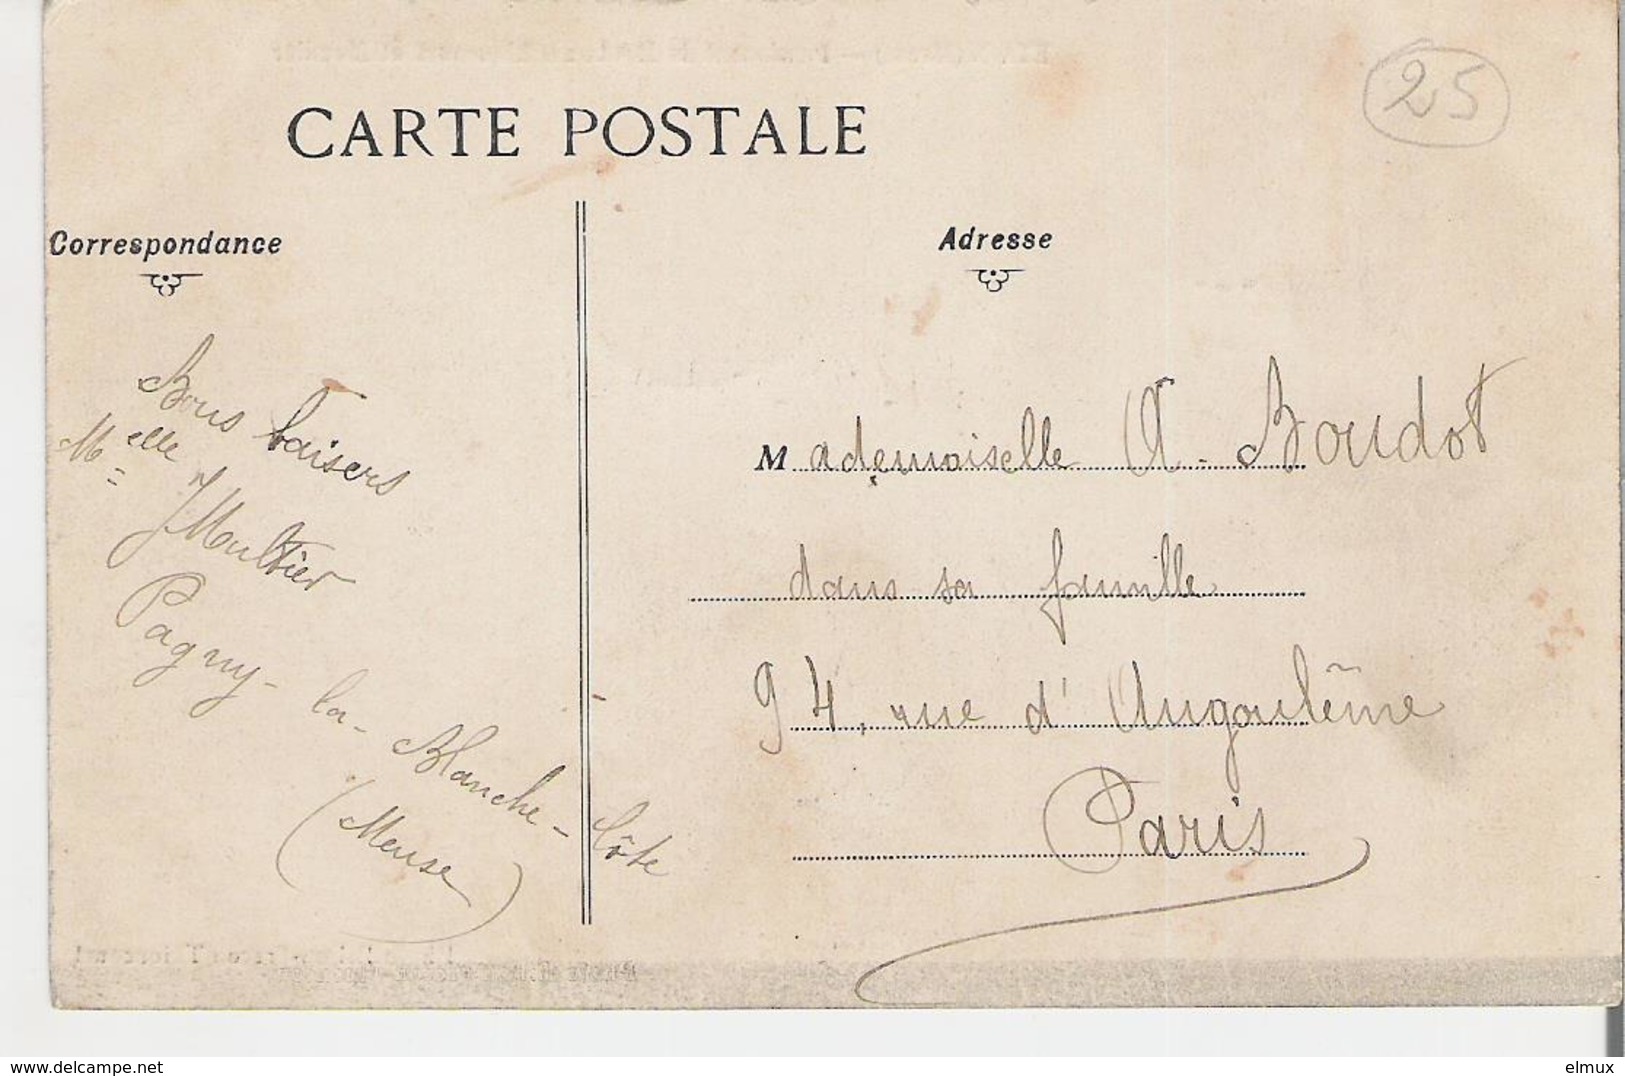 25
CARTE POSTALE
Correspondance
Adresse
Bons baisers
Melle J Moultier
Pagny-la-Blanche-Côte
(Meuse)
Mademoiselle A. Boudot
dans sa famille
94, rue d'Angoulême
Paris
delcampe.net
elmux